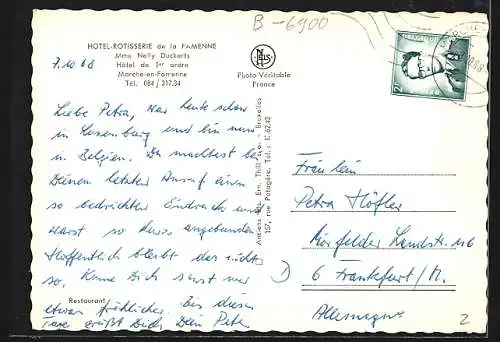 B-6900
HOTEL-ROTISSERIE de la FAMENNE
Mme Nelly Duckerts
Hôtel de 1er ordre
Marche-en-Famenne
Tél. 084 / 317.34
NELS
Photo Véritable
France
7.10.68
Liebe Petra, war heute schon
in Luxenburg und bin nun
in Belgien. Du machtest bei
Deinem letzten Anruf einen
so bedrückten Eindruck und
warst so kurz angebunden
Hoffentlich bleibt das nicht
so. Kenne Dich sonst nur
etwas fröhlicher. Bis diese
Tage grüßt Dich Dein Peter
Restaurant
Anciens Ets. Ern. Thill s.a. - Bruxelles
Fräulein
Petra Höfler
Mörfelder Landstr. 116
6 Frankfurt/M.
Allemagne
2